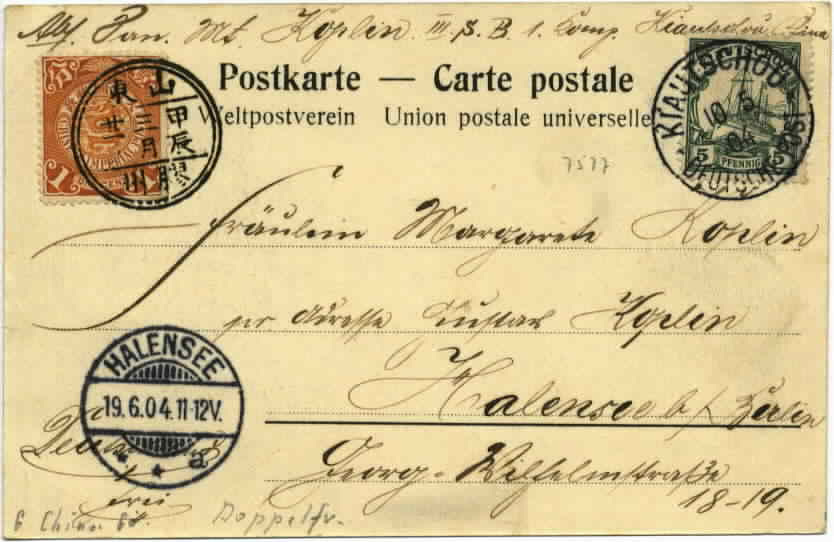 Abs. San. Mt. Koplin. III. S. B. 1. Comp. Kiautschou China
Postkarte — Carte postale
Weltpostverein Union postale universelle
山東
甲辰
三月
廿
膠州
1
KIAUTSCHOU
10 5 04
DEUTSCHE POST
5 PFENNIG 5
7577
Fräulein Margarete Koplin
per Adresse Gustav Koplin
HALENSEE
19.6.04.11-12V.
* * a
Halensee b/ Berlin
Georg-Wilhelmstraße
18-19.
frei
Doppelfr.